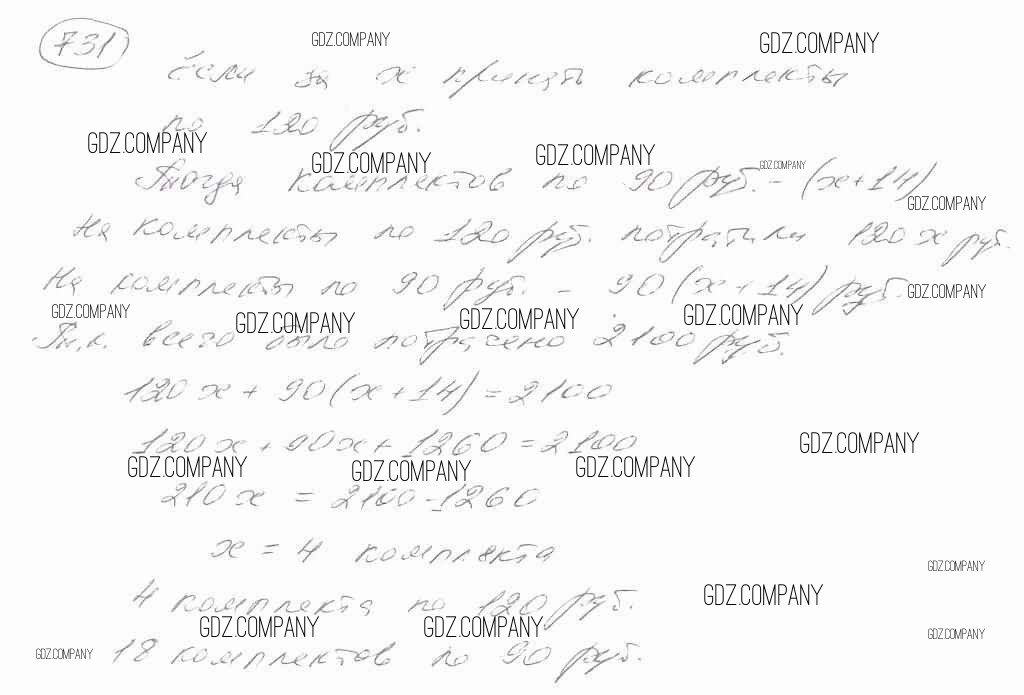 731
GDZ.COMPANY
GDZ.COMPANY
Если за x принять комплекты
по 120 руб.
GDZ.COMPANY
GDZ.COMPANY
GDZ.COMPANY
GDZ.COMPANY
Тогда комплектов по 90 руб. - (x+14)
GDZ.COMPANY
На комплекты по 120 руб. потратили 120x руб.
На комплекты по 90 руб. - 90(x+14) руб.
GDZ.COMPANY
GDZ.COMPANY
GDZ.COMPANY
GDZ.COMPANY
GDZ.COMPANY
Т.к. всего было потрачено 2100 руб.
120x + 90(x+14) = 2100
120x + 90x + 1260 = 2100
GDZ.COMPANY
GDZ.COMPANY
GDZ.COMPANY
GDZ.COMPANY
210x = 2100-1260
x = 4 комплекта
GDZ.COMPANY
4 комплекта по 120 руб.
GDZ.COMPANY
GDZ.COMPANY
GDZ.COMPANY
GDZ.COMPANY
GDZ.COMPANY
18 комплектов по 90 руб.